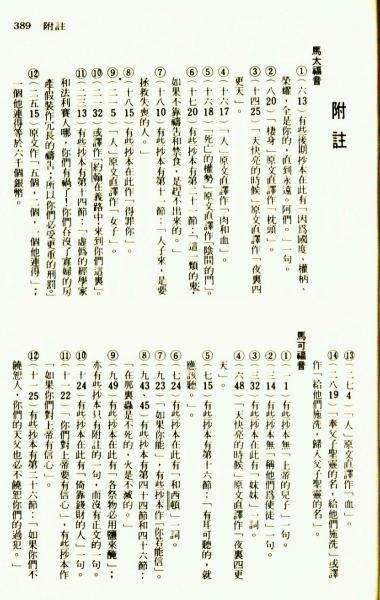 389 附註
附註
馬太福音
①(六13)有些後期抄本在此有「因爲國度、權柄、
榮耀,全是你的,直到永遠。阿們。」一句。
②(八20)「棲身」原文直譯作「枕頭」。
③(十四25)「天快亮的時候」原文直譯作「夜裏四
更天」。
④(十六17)「人」原文直譯作「肉和血」。
⑤(十六18)「死亡的權勢」原文直譯作「陰間的門」。
⑥(十七20)有些抄本有第二十一節:「這一類的鬼,
如果不靠禱告和禁食,是趕不出來的。」
⑦(十八10)有些抄本有第十一節:「人子來,是要
拯救失喪的人。」
⑧(十八15)有些抄本在此作「得罪你」。
⑨(二一5)「人」原文直譯作「女子」。
⑩(二一32)或譯作「約翰在義路中來到你們這裏」。
⑪(二三13)有些抄本有第十四節:「虛僞的經學家
和法利賽人哪,你們有禍了!你們吞沒了寡婦的房
產,假裝作冗長的禱告;所以你們必受更重的刑罰。」
⑫(二五15)原文作「五個、二個、一個他連得」;
一個他連得等於六千個銀幣。
⑬(二七4)「人」原文直譯作「血」。
⑭(二八19)「奉父子聖靈的名,給他們施洗」或譯
作「給他們施洗,歸入父子聖靈的名」。
馬可福音
①(一1)有些抄本無「上帝的兒子」一句。
②(三14)有些抄本無「稱他們爲使徒」一句。
③(三32)有些抄本在此有「妹妹」一詞。
④(六48)「天快亮的時候」原文直譯作「夜裏四更
天」。
⑤(七15)有些抄本有第十六節:「有耳可聽的,就
應該聽。」
⑥(七24)有些抄本在此有「和西頓」一詞。
⑦(九23)「如果你能」,有些抄本作「你若能信」。
⑧(九43、45)有些抄本有第四十四節和四十六節:
「在那裏蟲是不死的,火是不滅的。」
⑨(九49)有些抄本在此有「各祭物必用鹽來醃」;
亦有些抄本只有附註的一句,而沒有正文的一句。
⑩(十24)有些抄本在此有「倚靠錢財的人」一句。
⑪(十一22)「你們對上帝要有信心」,有些抄本作
「如果你們對上帝有信心」。
⑫(十一25)有些抄本有第二十六節:「如果你們不
饒恕人,你們的天父也必不饒恕你們的過犯。」